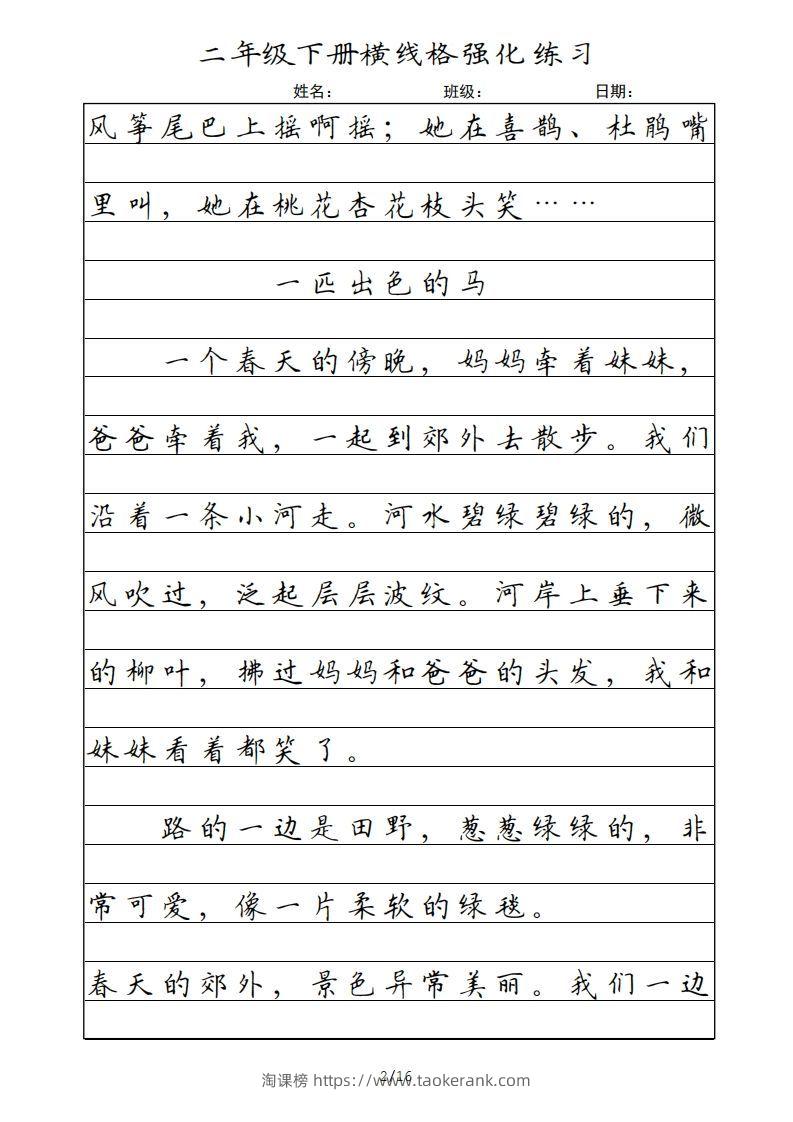 二年级下册横线格强化练习
姓名： 班级： 日期：
风筝尾巴上摇啊摇；她在喜鹊、杜鹃嘴
里叫，她在桃花杏花枝头笑……
一匹出色的马
一个春天的傍晚，妈妈牵着妹妹，
爸爸牵着我，一起到郊外去散步。我们
沿着一条小河走。河水碧绿碧绿的，微
风吹过，泛起层层波纹。河岸上垂下来
的柳叶，拂过妈妈和爸爸的头发，我和
妹妹看着都笑了。
路的一边是田野，葱葱绿绿的，非
常可爱，像一片柔软的绿毯。
春天的郊外，景色异常美丽。我们一边
2/16
淘课榜 https://www.taokerank.com